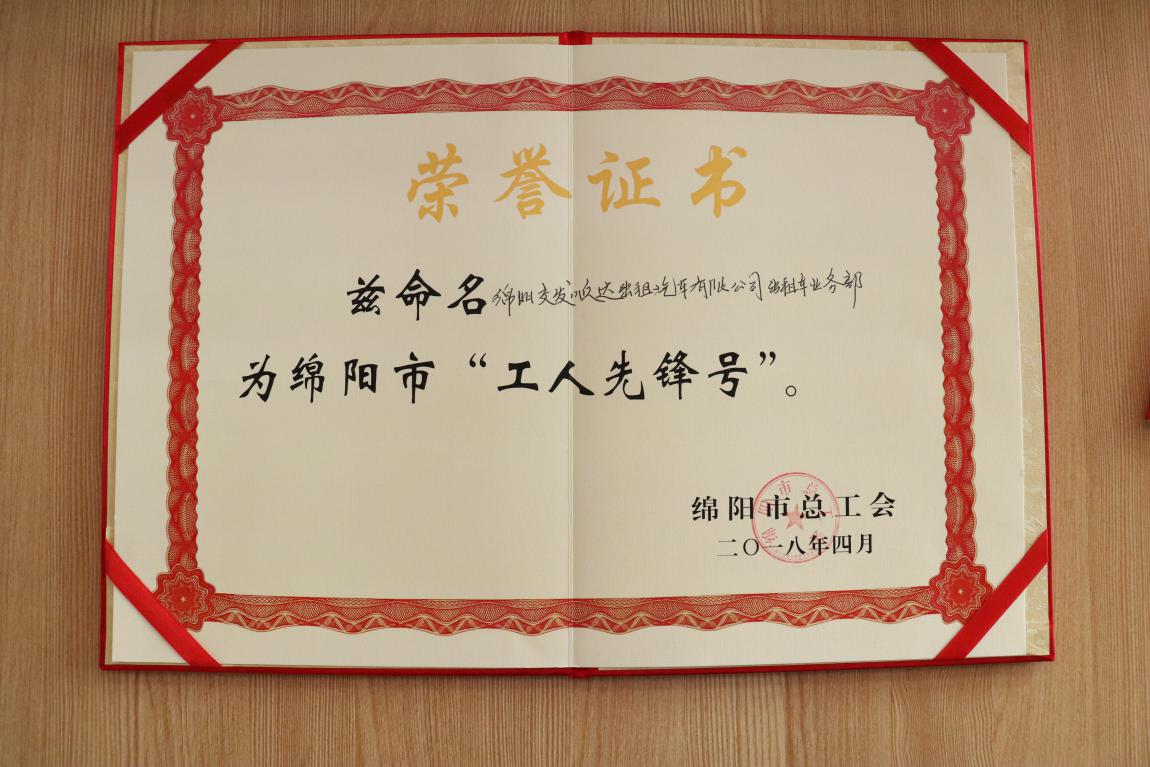 荣誉证书
兹命名绵阳交发顺达出租汽车有限公司出租车业务部
为绵阳市“工人先锋号”。
绵阳市总工会
二〇一八年四月